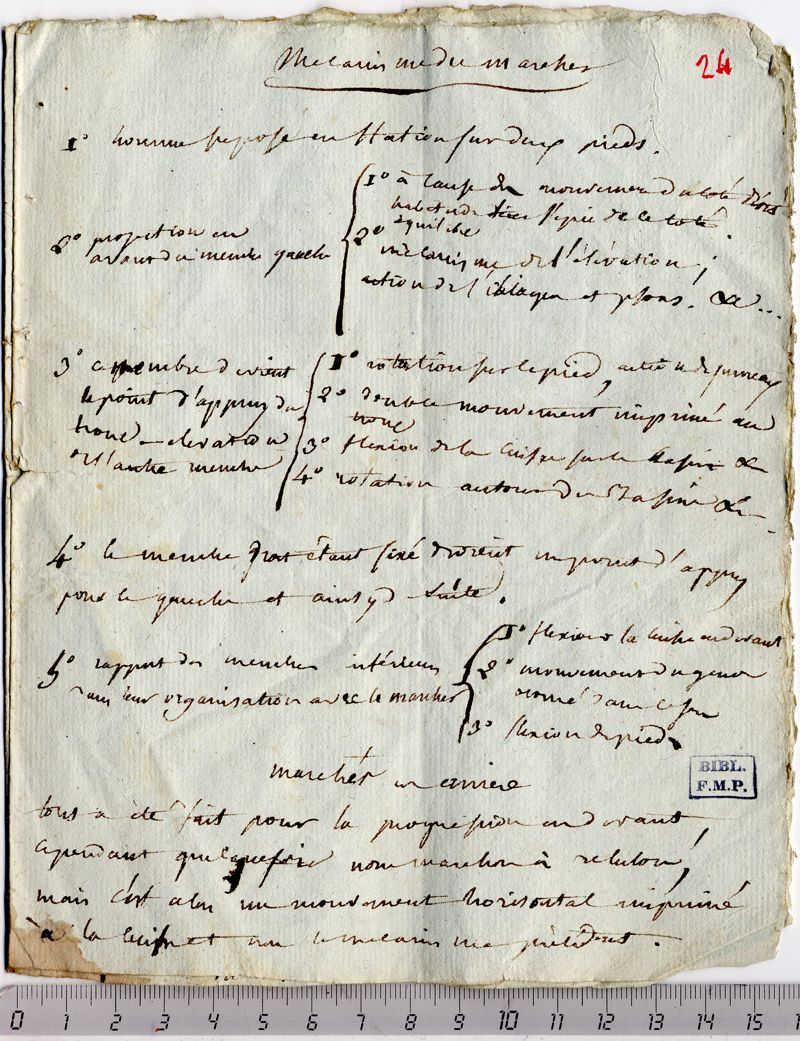 24
Mecanisme du marcher
1° homme supposé en station sur deux pieds.
2° projection en
avant du membre gauche
1° à cause du mouvement du coté droit
habitude l'épée de ce coté.
equilibre
2° mecanisme de l'élévation;
action de l'iliaque et psoas. &c...
3° ce membre devient
le point d'appuy du
tronc - elevation
de l'autre membre
1° rotation sur le pied, action des jumeaux
2° double mouvement imprimé au
tronc
3° flexion de la cuisse sur le bassin &c
4° rotation autour du bassin &c -
4° le membre droit étant fixé devient un point d'appuy
pour le gauche et ainsy d suite.
5° rapport des membres inférieurs
dans leur organisation avec le marcher
1° flexion d la cuisse en devant
2° mouvement du genou
borné dans ce sens
3° flexion du pied
marcher en arriere
BIBL.
F.M.P.
tout a été fait pour la progression en devant,
cependant quelquefois nous marchons à reculon,
mais c'est alors un mouvement horisontal imprimé
à la cuisse et non le mecanisme précédent.
0 1 2 3 4 5 6 7 8 9 10 11 12 13 14 15 1